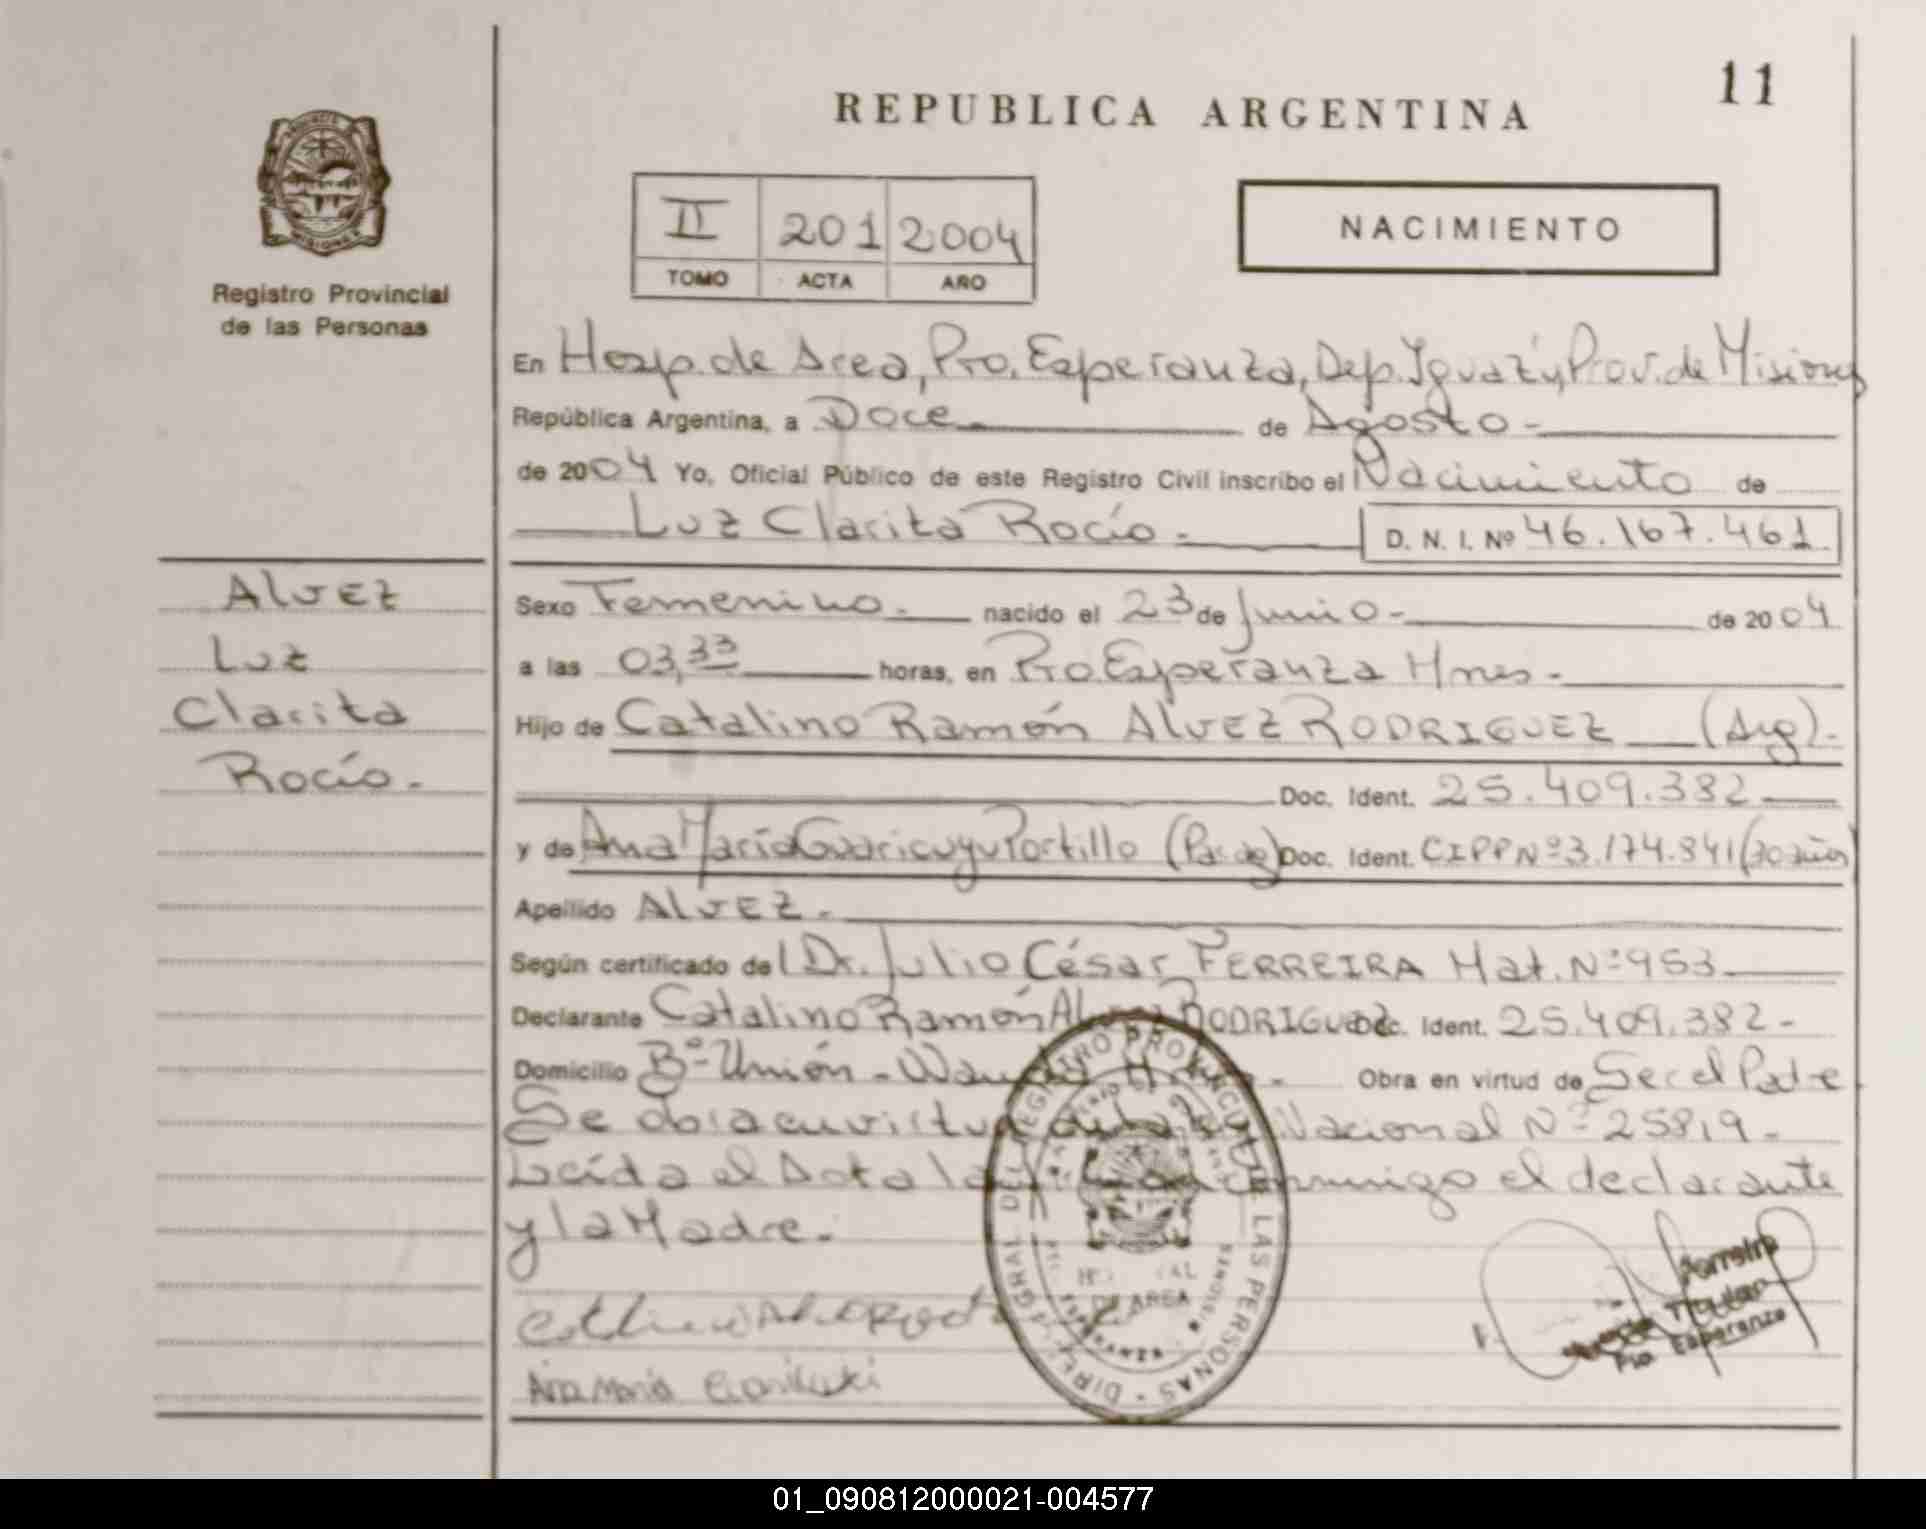 REPUBLICA ARGENTINA
11
MISIONES
Registro Provincial
de las Personas
II 201 2004
TOMO ACTA AÑO
NACIMIENTO
En Hosp. de Area, Pto. Esperanza, Dep. Iguazú, Prov. de Misiones
República Argentina, a Doce de Agosto -
de 2004 Yo, Oficial Público de este Registro Civil inscribo el Nacimiento de
Luz Clarita Rocío - D. N. I. Nº 46.167.461
Alvez
Luz
Clarita
Rocío -
Sexo Femenino - nacido el 23 de Junio - de 2004
a las 03,33 horas, en Pto. Esperanza Mnes -
Hijo de Catalino Ramón ALVEZ RODRIGUEZ (Arg) -
Doc. Ident. 25.409.382
y de Ana María Portillo Doc. Ident. CIPPNº 3.174.841 (30 años)
Apellido ALVEZ -
Según certificado del Dr. Julio César FERREIRA Mat. Nº 953
Declarante Catalino Ramón Alvez RODRIGUEZ Doc. Ident. 25.409.382 -
Domicilio Bº Unión - Obra en virtud de Ser el Padre
Se obra en virtud de la Ley Nacional Nº 25819 -
Leída el Acta la conmigo el declarante
y la Madre -
Ana María
DEL REGISTRO PROVINCIAL DE LAS PERSONAS
DE AREA
ESPERANZA
MISIONES
Ferreira
Titular
Pto. Esperanza
01_090812000021-004577